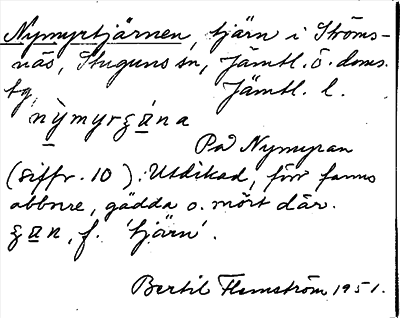 Nymyrtjärnen, tjärn i Ströms-
näs, Stuguns sn, Jämtl. ö. doms.
tg, Jämtl. l.
nỳmyrʒána
På Nymyran
(siffr. 10). Utdikad, förr fanns
abborre, gädda o. mört där.
ʒan, f. 'tjärn'.
Bertil Flemström 1951.